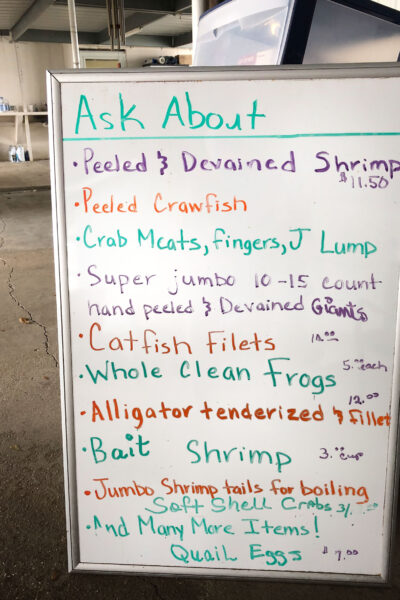 Ask About
• Peeled & Devained Shrimp
$11.50
• Peeled Crawfish
• Crab Meats, fingers, J Lump
• Super jumbo 10-15 count
hand peeled & Devained Giants
• Catfish Filets
• Whole Clean Frogs 5.00 each
• Alligator tenderized & Fillet 12.00
• Bait Shrimp 3.00 cup
• Jumbo Shrimp tails for boiling
Soft Shell Crabs
• And Many More Items!
Quail Eggs $7.00